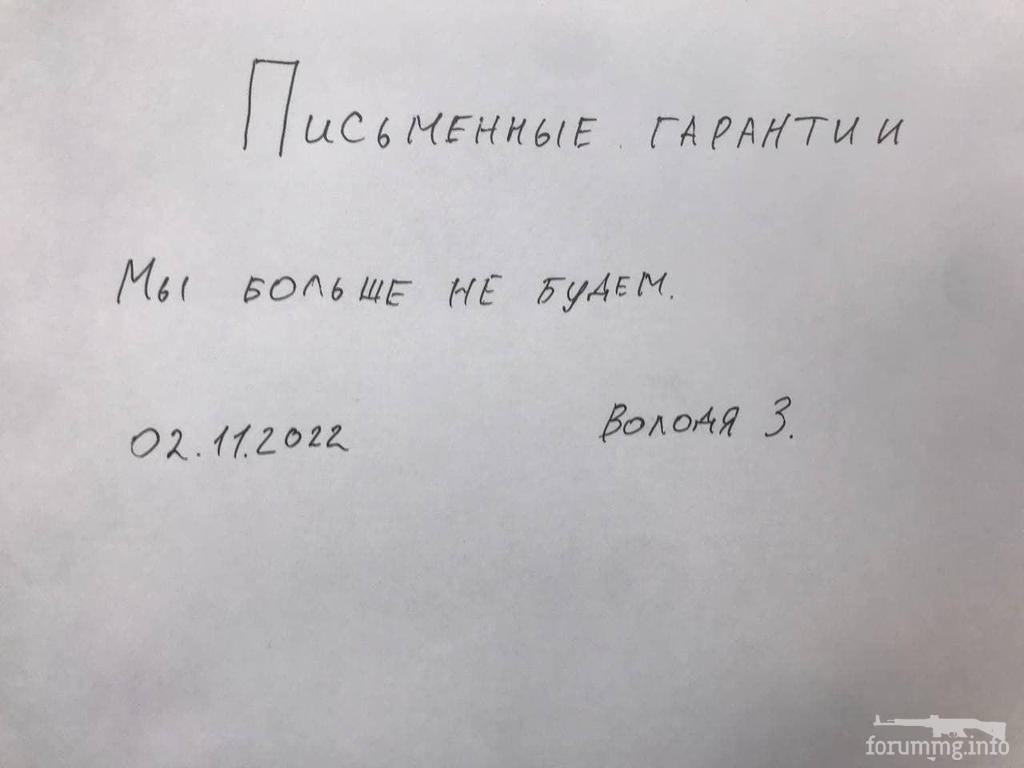 Письменные гарантии
Мы больше не будем.
02.11.2022
Володя З.
forummg.info